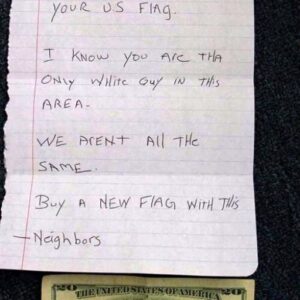 YOUR US FLAG.
I KNOW YOU ARE THA
ONLY WHITE GUY IN THIS
AREA.
WE ARENT All THE
SAME.
BUY A NEW FLAG WITH THIS
-Neighbors
20 THE UNITED STATES OF AMERICA 20